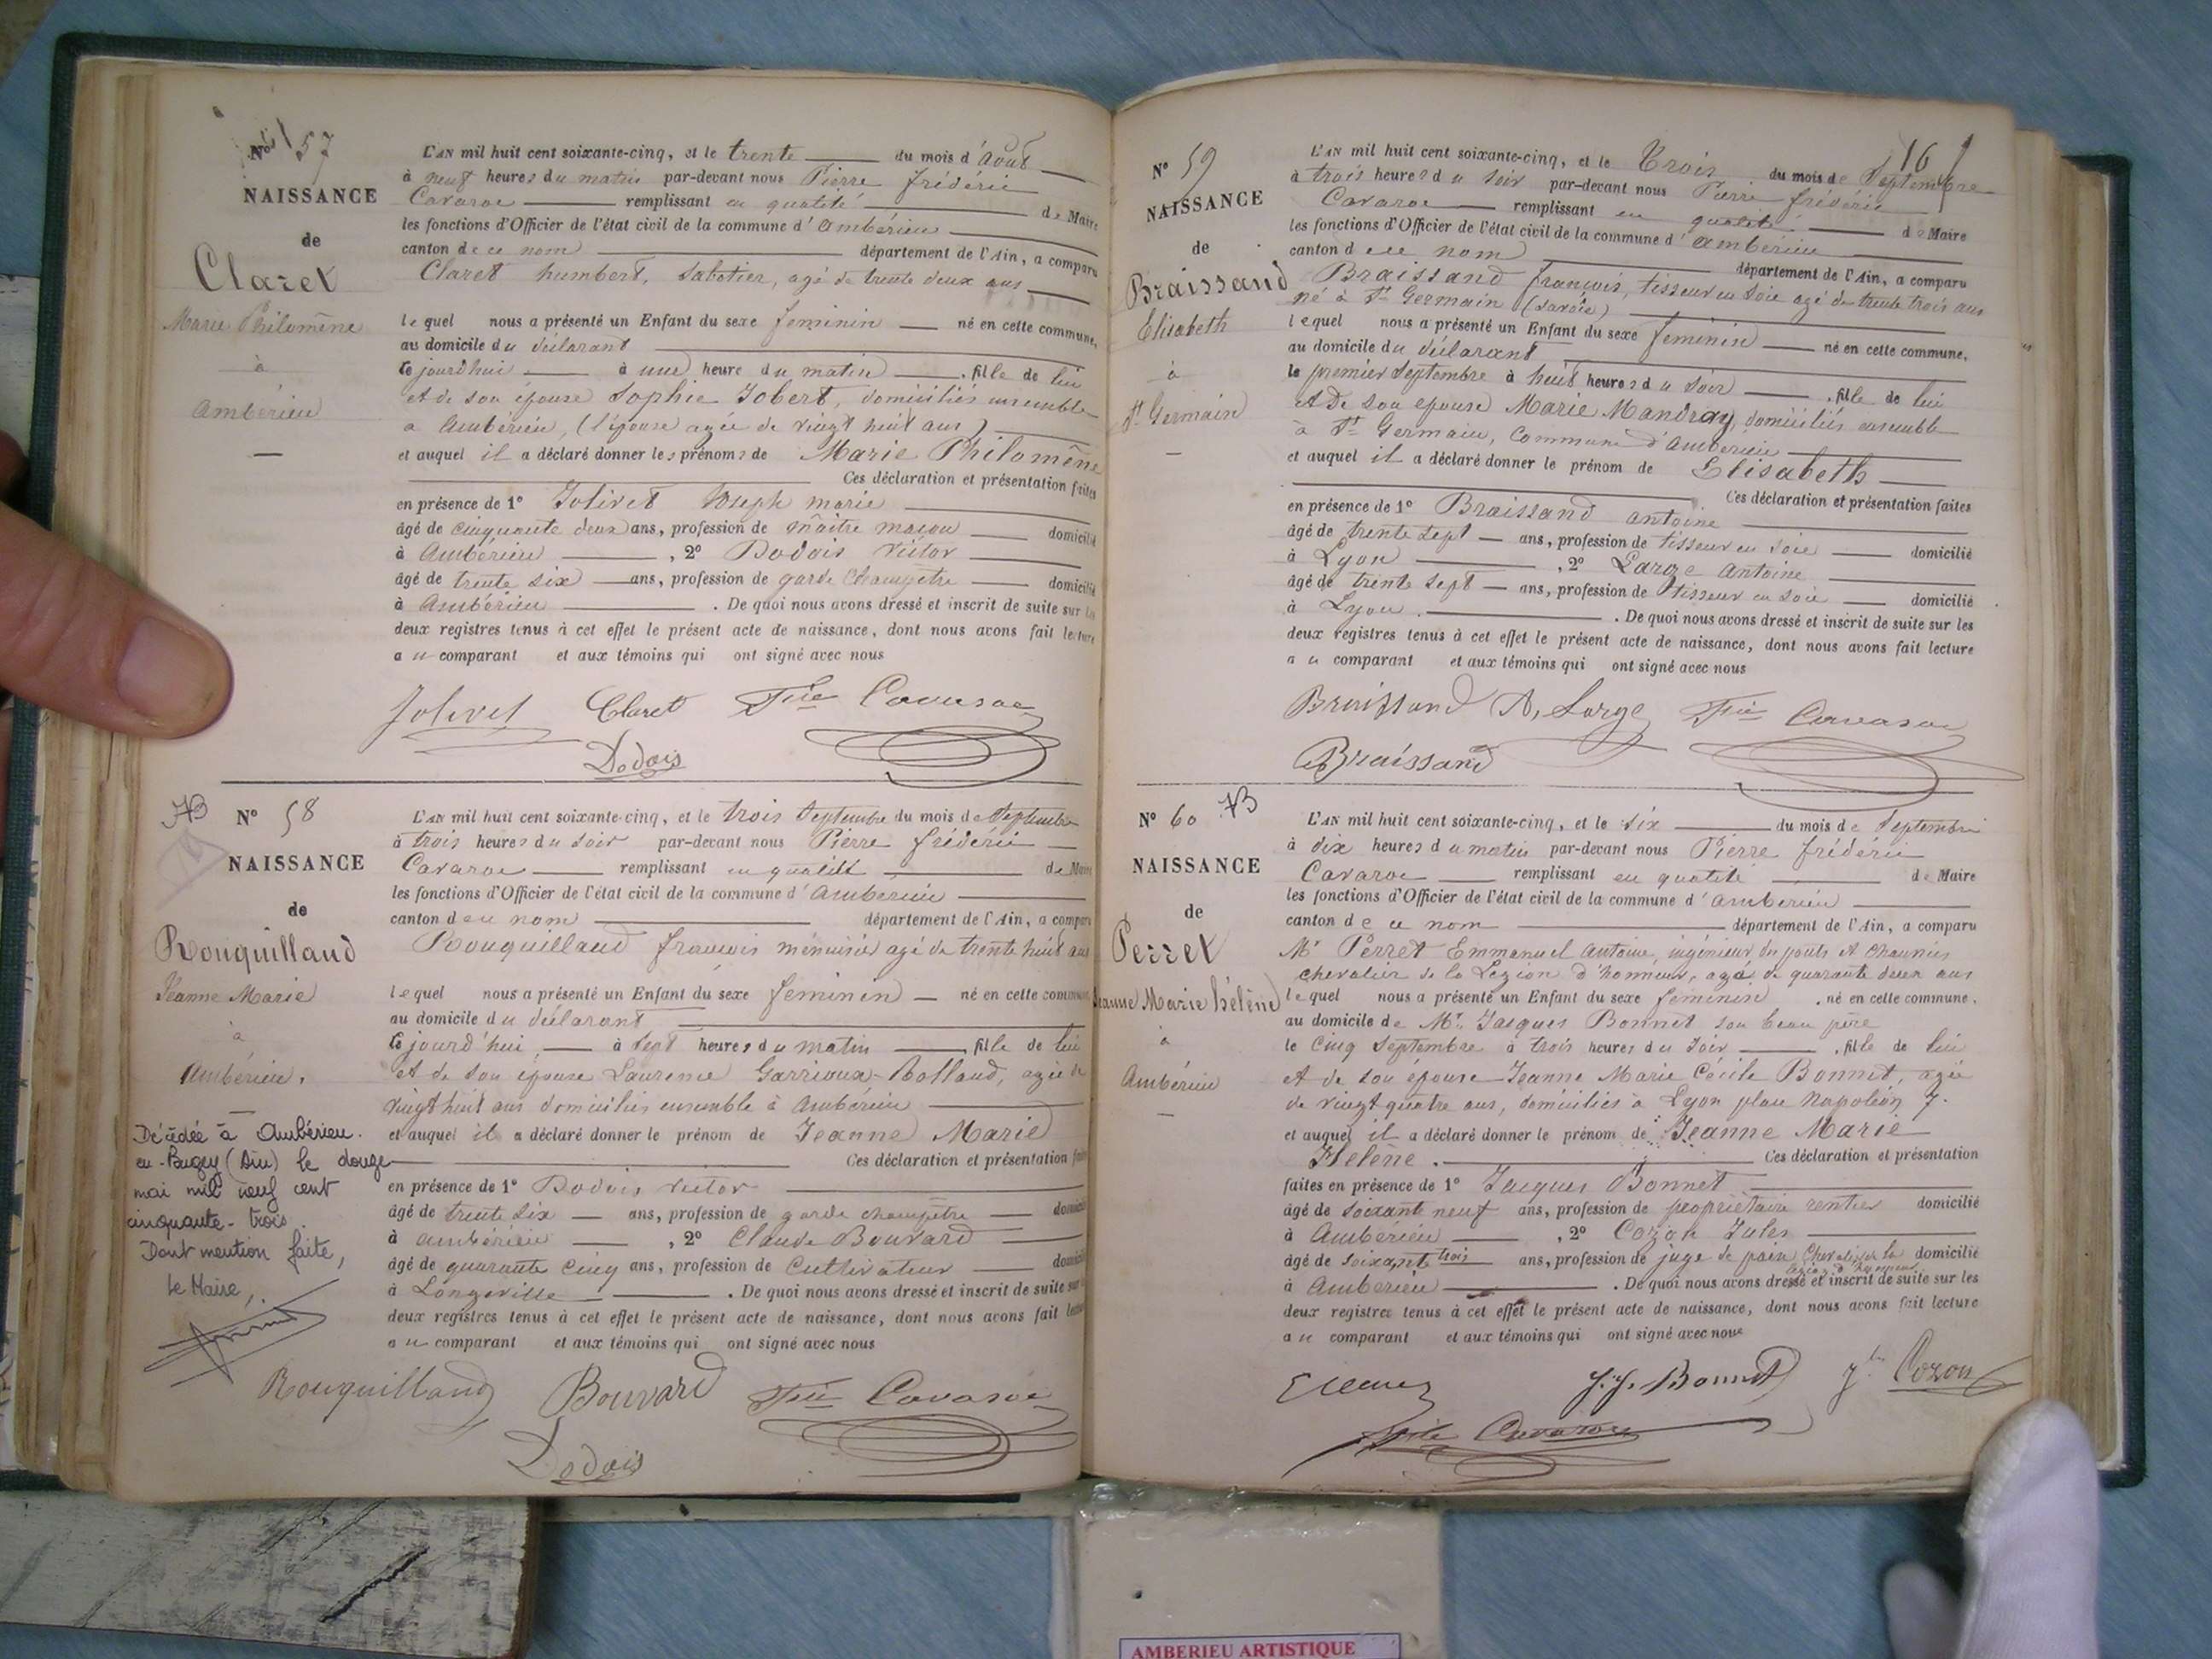 Nos 57
NAISSANCE
de
Claret
Marie Philomène
à
Ambérieu
L'AN mil huit cent soixante-cinq, et le trente du mois d'Août
à neuf heures du matin par-devant nous Pierre frédéric
Cavaroc remplissant en qualité de Maire
les fonctions d'Officier de l'état civil de la commune d'Ambérieu
canton de ce nom département de l'Ain, a comparu
Claret humbert, Sabotier, agé de trente deux ans
lequel nous a présenté un Enfant du sexe feminin né en cette commune,
au domicile du déclarant
ce jourd'hui à une heure du matin, fille de lui
et de son épouse Sophie Jobert, domiciliés ensemble
a Ambérieu, (l'épouse agée de vingt huit ans)
et auquel il a déclaré donner les prénoms de Marie Philomène
Ces déclaration et présentation faites
en présence de 1º Jolivet Joseph marie
âgé de cinquante deux ans, profession de maître maçon domicilié
à Ambérieu, 2º Dodois Victor
âgé de trente six ans, profession de garde champêtre domicilié
à Ambérieu. De quoi nous avons dressé et inscrit de suite sur les
deux registres tenus à cet effet le présent acte de naissance, dont nous avons fait lecture
au comparant et aux témoins qui ont signé avec nous
Jolivet Claret Fric Cavaroc
Dodois
Nº 58
NAISSANCE
de
Rouquilland
Jeanne Marie
à
Ambérieu.
Décédée à Ambérieu-
en-Bugey (Ain) le douze
mai mil neuf cent
cinquante-trois.
Dont mention faite,
Le Maire,
L'AN mil huit cent soixante-cinq, et le trois Septembre du mois de Septembre
à trois heures du soir par-devant nous Pierre frédéric
Cavaroc remplissant en qualité de Maire
les fonctions d'Officier de l'état civil de la commune d'Ambérieu
canton de ce nom département de l'Ain, a comparu
Rouquilland françois menuisier agé de trente huit ans
lequel nous a présenté un Enfant du sexe feminin né en cette commune,
au domicile du déclarant
ce jourd'hui à sept heures du matin, fille de lui
et de son épouse Laurence Garrioux-Rolland, agée de
vingt huit ans domiciliés ensemble à Ambérieu
et auquel il a déclaré donner le prénom de Jeanne Marie
Ces déclaration et présentation faites
en présence de 1º Dodois Victor
âgé de trente six ans, profession de garde champêtre domicilié
à Ambérieu, 2º Claude Bouvard
âgé de quarante cinq ans, profession de Cultivateur domicilié
à Longeville. De quoi nous avons dressé et inscrit de suite sur
deux registres tenus à cet effet le présent acte de naissance, dont nous avons fait lecture
au comparant et aux témoins qui ont signé avec nous
Rouquilland Bouvard Fric Cavaroc
Dodois
16
Nº 59
NAISSANCE
de
Braissand
Elisabeth
à
St Germain
L'AN mil huit cent soixante-cinq, et le Trois du mois de Septembre
à trois heures du soir par-devant nous Pierre frédéric
Cavaroc remplissant en qualité de Maire
les fonctions d'Officier de l'état civil de la commune d'Ambérieu
canton de ce nom département de l'Ain, a comparu
Braissand françois, tisseur en soie agé de trente trois ans
né à St Germain (Savoie)
lequel nous a présenté un Enfant du sexe feminin né en cette commune,
au domicile du déclarant
le premier Septembre à huit heures du soir, fille de lui
et de son epouse Marie Mandray, domiciliés ensemble
à St Germain, Commune d'Ambérieu
et auquel il a déclaré donner le prénom de Elisabeth
Ces déclaration et présentation faites
en présence de 1º Braissand antoine
âgé de trente sept ans, profession de tisseur en soie domicilié
à Lyon, 2º Large Antoine
âgé de trente sept ans, profession de tisseur en soie domicilié
à Lyon. De quoi nous avons dressé et inscrit de suite sur les
deux registres tenus à cet effet le présent acte de naissance, dont nous avons fait lecture
au comparant et aux témoins qui ont signé avec nous
Braissand A, Large Fric Cavaroc
Braissand
Nº 60
NAISSANCE
de
Perret
Jeanne Marie hélène
à
Ambérieu
L'AN mil huit cent soixante-cinq, et le six du mois de Septembre
à dix heures du matin par-devant nous Pierre frédéric
Cavaroc remplissant en qualité de Maire
les fonctions d'Officier de l'état civil de la commune d'Ambérieu
canton de ce nom département de l'Ain, a comparu
Mr Perret Emmanuel Antoine, ingénieur des ponts et chaussées
chevalier de la Légion d'honneur, agé de quarante deux ans
lequel nous a présenté un Enfant du sexe féminin, né en cette commune.
au domicile de Mr. Jacques Bonnet son beau père
le Cinq Septembre à trois heures du soir, fille de lui
et de son épouse Jeanne Marie Cécile Bonnet, agée
de vingt quatre ans, domiciliés à Lyon place Napoléon, 7.
et auquel il a déclaré donner le prénom de Jeanne Marie
Hélène. Ces déclaration et présentation
faites en présence de 1º Jacques Bonnet
âgé de soixante neuf ans, profession de propriétaire rentier domicilié
à Ambérieu, 2º Cozon Jules
âgé de soixante trois ans, profession de juge de paix Chevalier de la domicilié
Légion d'honneur
à Ambérieu. De quoi nous avons dressé et inscrit de suite sur les
deux registres tenus à cet effet le présent acte de naissance, dont nous avons fait lecture
au comparant et aux témoins qui ont signé avec nous
J.J. Bonnet Jles Cozon
Cavaroc
AMBERIEU ARTISTIQUE